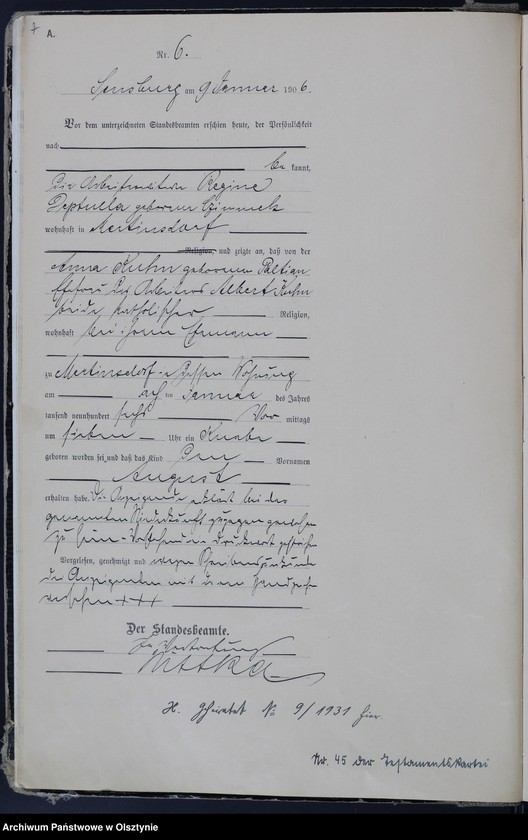 7
A.
Nr. 6.
Sensburg am 9 Januar 1906.
Vor dem unterzeichneten Standesbeamten erschien heute, der Persönlichkeit
nach
be kannt,
die Arbeiterwitwe Regine
Deptulla geborene
wohnhaft in Mertinsdorf
Religion, und zeigte an, daß von der
Anna Kuhn geborenen
Ehefrau des Arbeiters Albert Kuhn
beide katholischer Religion,
wohnhaft bei ihrem Ehemann
zu Mertinsdorf in dessen Wohnung
am acht ten Januar des Jahres
tausend neunhundert sechs Vor mittags
um sieben Uhr ein Knabe
geboren worden sei und daß das Kind den Vornamen
August
erhalten habe. Die Anzeigende erklärt bei der
genannten Niederkunft zugegen gewesen
zu sein. Vorstehend ein Druckwort gestrichen
Vorgelesen, genehmigt und wegen Schreibensunkunde
der Anzeigenden mit ihrem Handzeichen
versehen +++
Der Standesbeamte.
In Vertretung
Wittka
H. Geheiratet No 9/1931 hier.
Nr. 45 der Testamentskartei
Archiwum Państwowe w Olsztynie